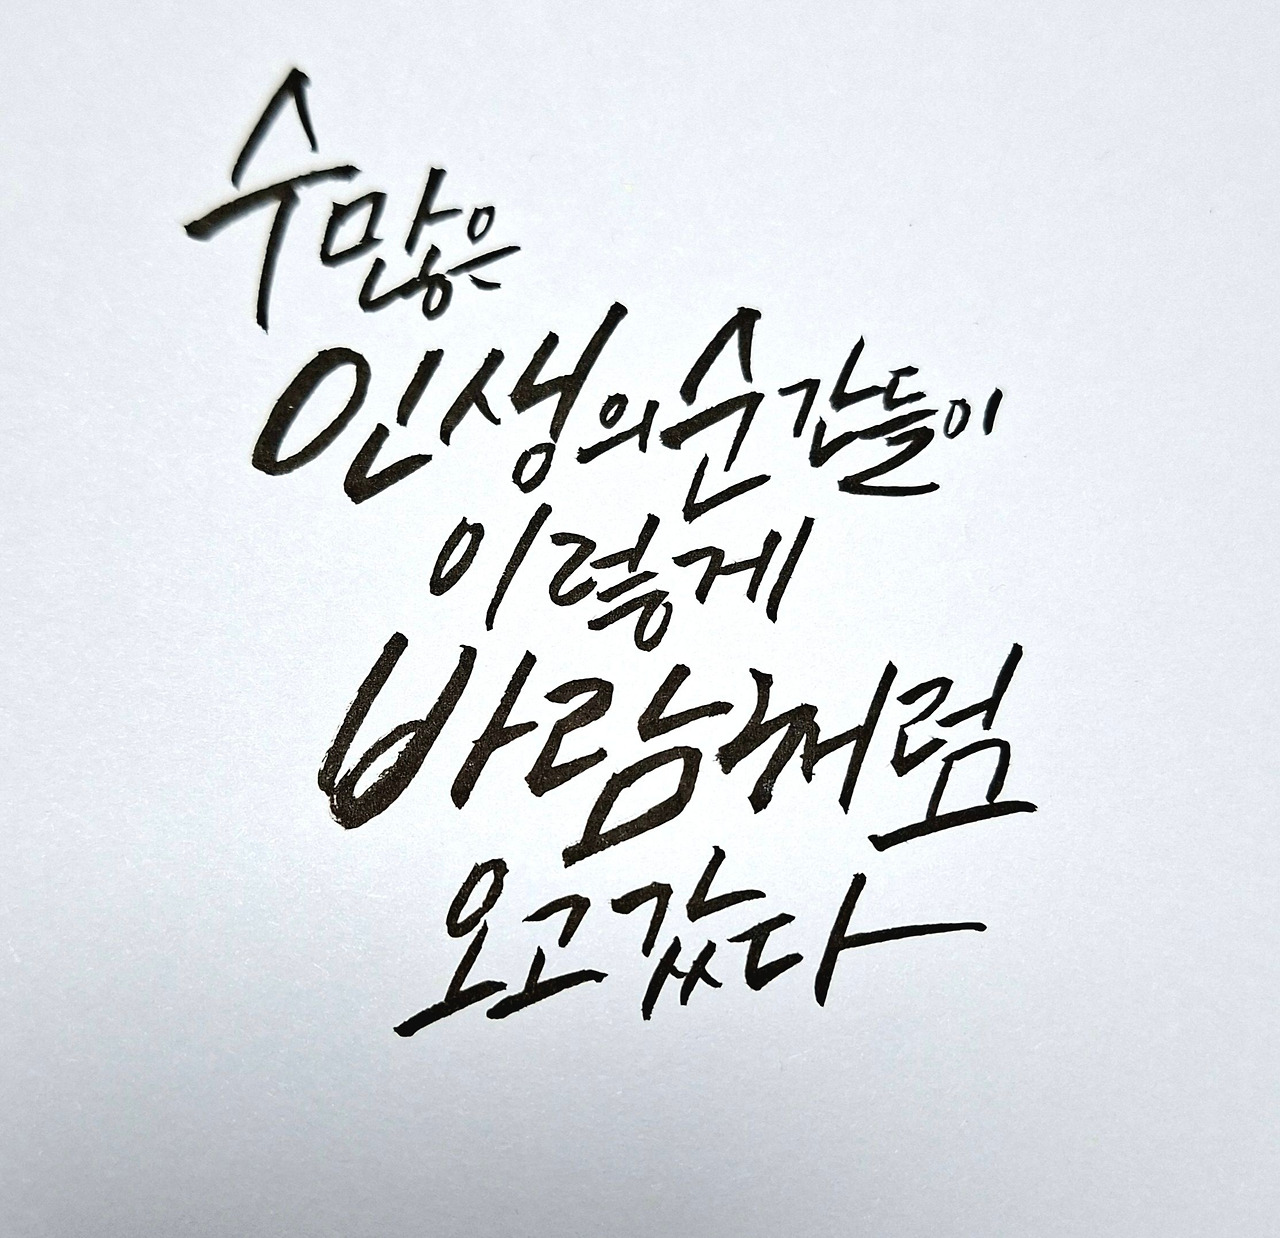 수많은
인생의 순간들이
이렇게
바람처럼
오고갔다